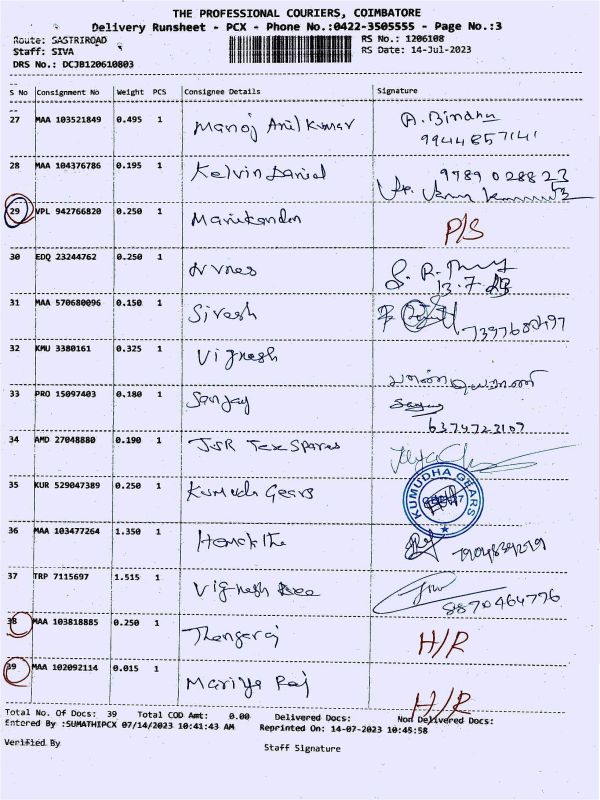 THE PROFESSIONAL COURIERS, COIMBATORE
Delivery Runsheet - PCX - Phone No.:0422-3505555 - Page No.:3
Route: SASTRIROAD RS No.: 1206108
Staff: SIVA RS Date: 14-Jul-2023
DRS No.: DCJB120610803
S No Consignment No Weight PCS Consignee Details Signature
27 MAA 103521849 0.495 1 Manoj Anil Kumar A. Bindhu
9944857141
28 MAA 104376786 0.195 1 Kelvin Daniel 9789028823
29 VPL 942766820 0.250 1 Manikandan P/S
30 EDQ 23244762 0.250 1
13.7.23
31 MAA 570680096 0.150 1 Sivesh
32 KMU 3380161 0.325 1 Vignesh
33 PRO 15097403 0.180 1 Sanjay
6374723107
34 AMD 27048880 0.190 1 JSR Tex Spares
35 KUR 529047389 0.250 1 Kumuda Gears KUMUDHA GEARS
36 MAA 103477264 1.350 1
37 TRP 7115697 1.515 1 Vignesh
8870464776
38 MAA 103818885 0.250 1 Thangaraj H/R
39 MAA 102092114 0.015 1 Mariya Raj H/R
Total No. Of Docs: 39 Total COD Amt: 0.00 Delivered Docs: Non Delivered Docs:
Entered By :SUMATHIPCX 07/14/2023 10:41:43 AM Reprinted On: 14-07-2023 10:45:58
Verified By Staff Signature